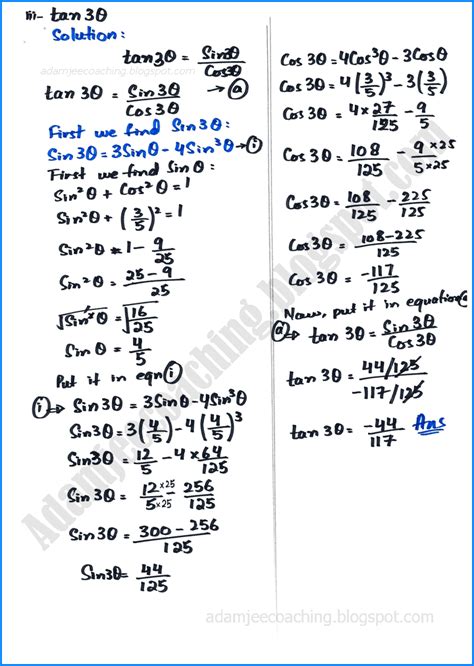 iii- tan 3θ
Solution:
tan3θ = Sin3θ / Cos3θ
adamjeecoaching.blogspot.com
tan 3θ = Sin 3θ / Cos 3θ → ⓐ
First we find Sin 3θ:
Sin 3θ = 3Sinθ - 4Sin³θ → ⓘ
First we find Sin θ:
Sin²θ + Cos²θ = 1
Sin²θ + (3/5)² = 1
Sin²θ = 1 - 9/25
Sin²θ = 25 - 9 / 25
√Sin²θ = √16/25
Sin θ = 4/5
Put it in eqn ⓘ
ⓘ ⇒ Sin3θ = 3Sinθ - 4Sin³θ
Sin3θ = 3(4/5) - 4(4/5)³
Sin3θ = 12/5 - 4 × 64/125
Sin 3θ = 12 × 25 / 5 × 25 - 256/125
Sin 3θ = 300 - 256 / 125
Sin3θ = 44/125
Cos 3θ = 4Cos³θ - 3Cosθ
Cos 3θ = 4(3/5)³ - 3(3/5)
Cos 3θ = 4 × 27/125 - 9/5
Cos 3θ = 108/125 - 9 × 25 / 5 × 25
Cos 3θ = 108/125 - 225/125
Cos 3θ = 108 - 225 / 125
Cos 3θ = -117/125
Now, put it in equation ⓐ
ⓐ ⇒ tan 3θ = Sin3θ / Cos3θ
tan 3θ = 44/125 / -117/125
tan 3θ = -44/117 Ans
Adamjeecoaching.blogspot.com
adamjeecoaching.blogspot.com